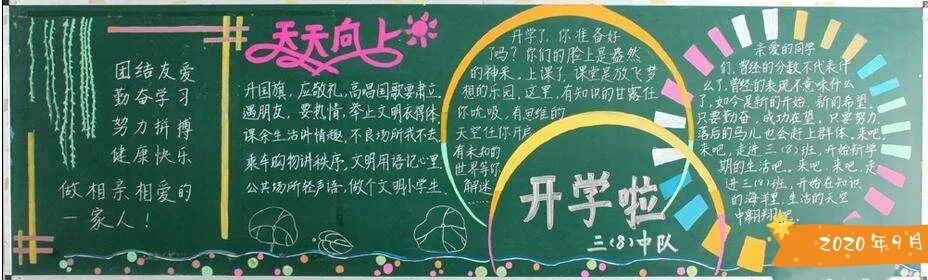 团结友爱
勤奋学习
努力拼搏
健康快乐
做相亲相爱的
一家人！
天天向上
升国旗，应敬礼，高唱国歌要肃立。
遇朋友，要热情，举止文明衣得体
课余生活讲情趣，不良场所我不去，
乘车购物讲秩序，文明用语记心里
公共场所轻声语，做个文明小学生.
开学了，你准备好
了吗？你们的脸上是盎然
的神采，上课了，课堂是放飞梦
想的乐园，这里，有知识的甘露任
你吮吸，有思维的
天空任你开启
有未知的
世界等你
解迷.
开学啦
三(8)中队
亲爱的同学
们，曾经的分数不代表什
么了，曾经的表现不意味什么
了，如今是新的开始，新的希望。
只要勤奋，成功在望，只要努力，
落后的马儿也会赶上群体，来吧，
来吧，走进三(8)班，开始新学
期的生活吧，来吧，来吧，走
进三(8)班，开始在知识
的海洋里，生活的天空
中翱翔吧。
2020年9月